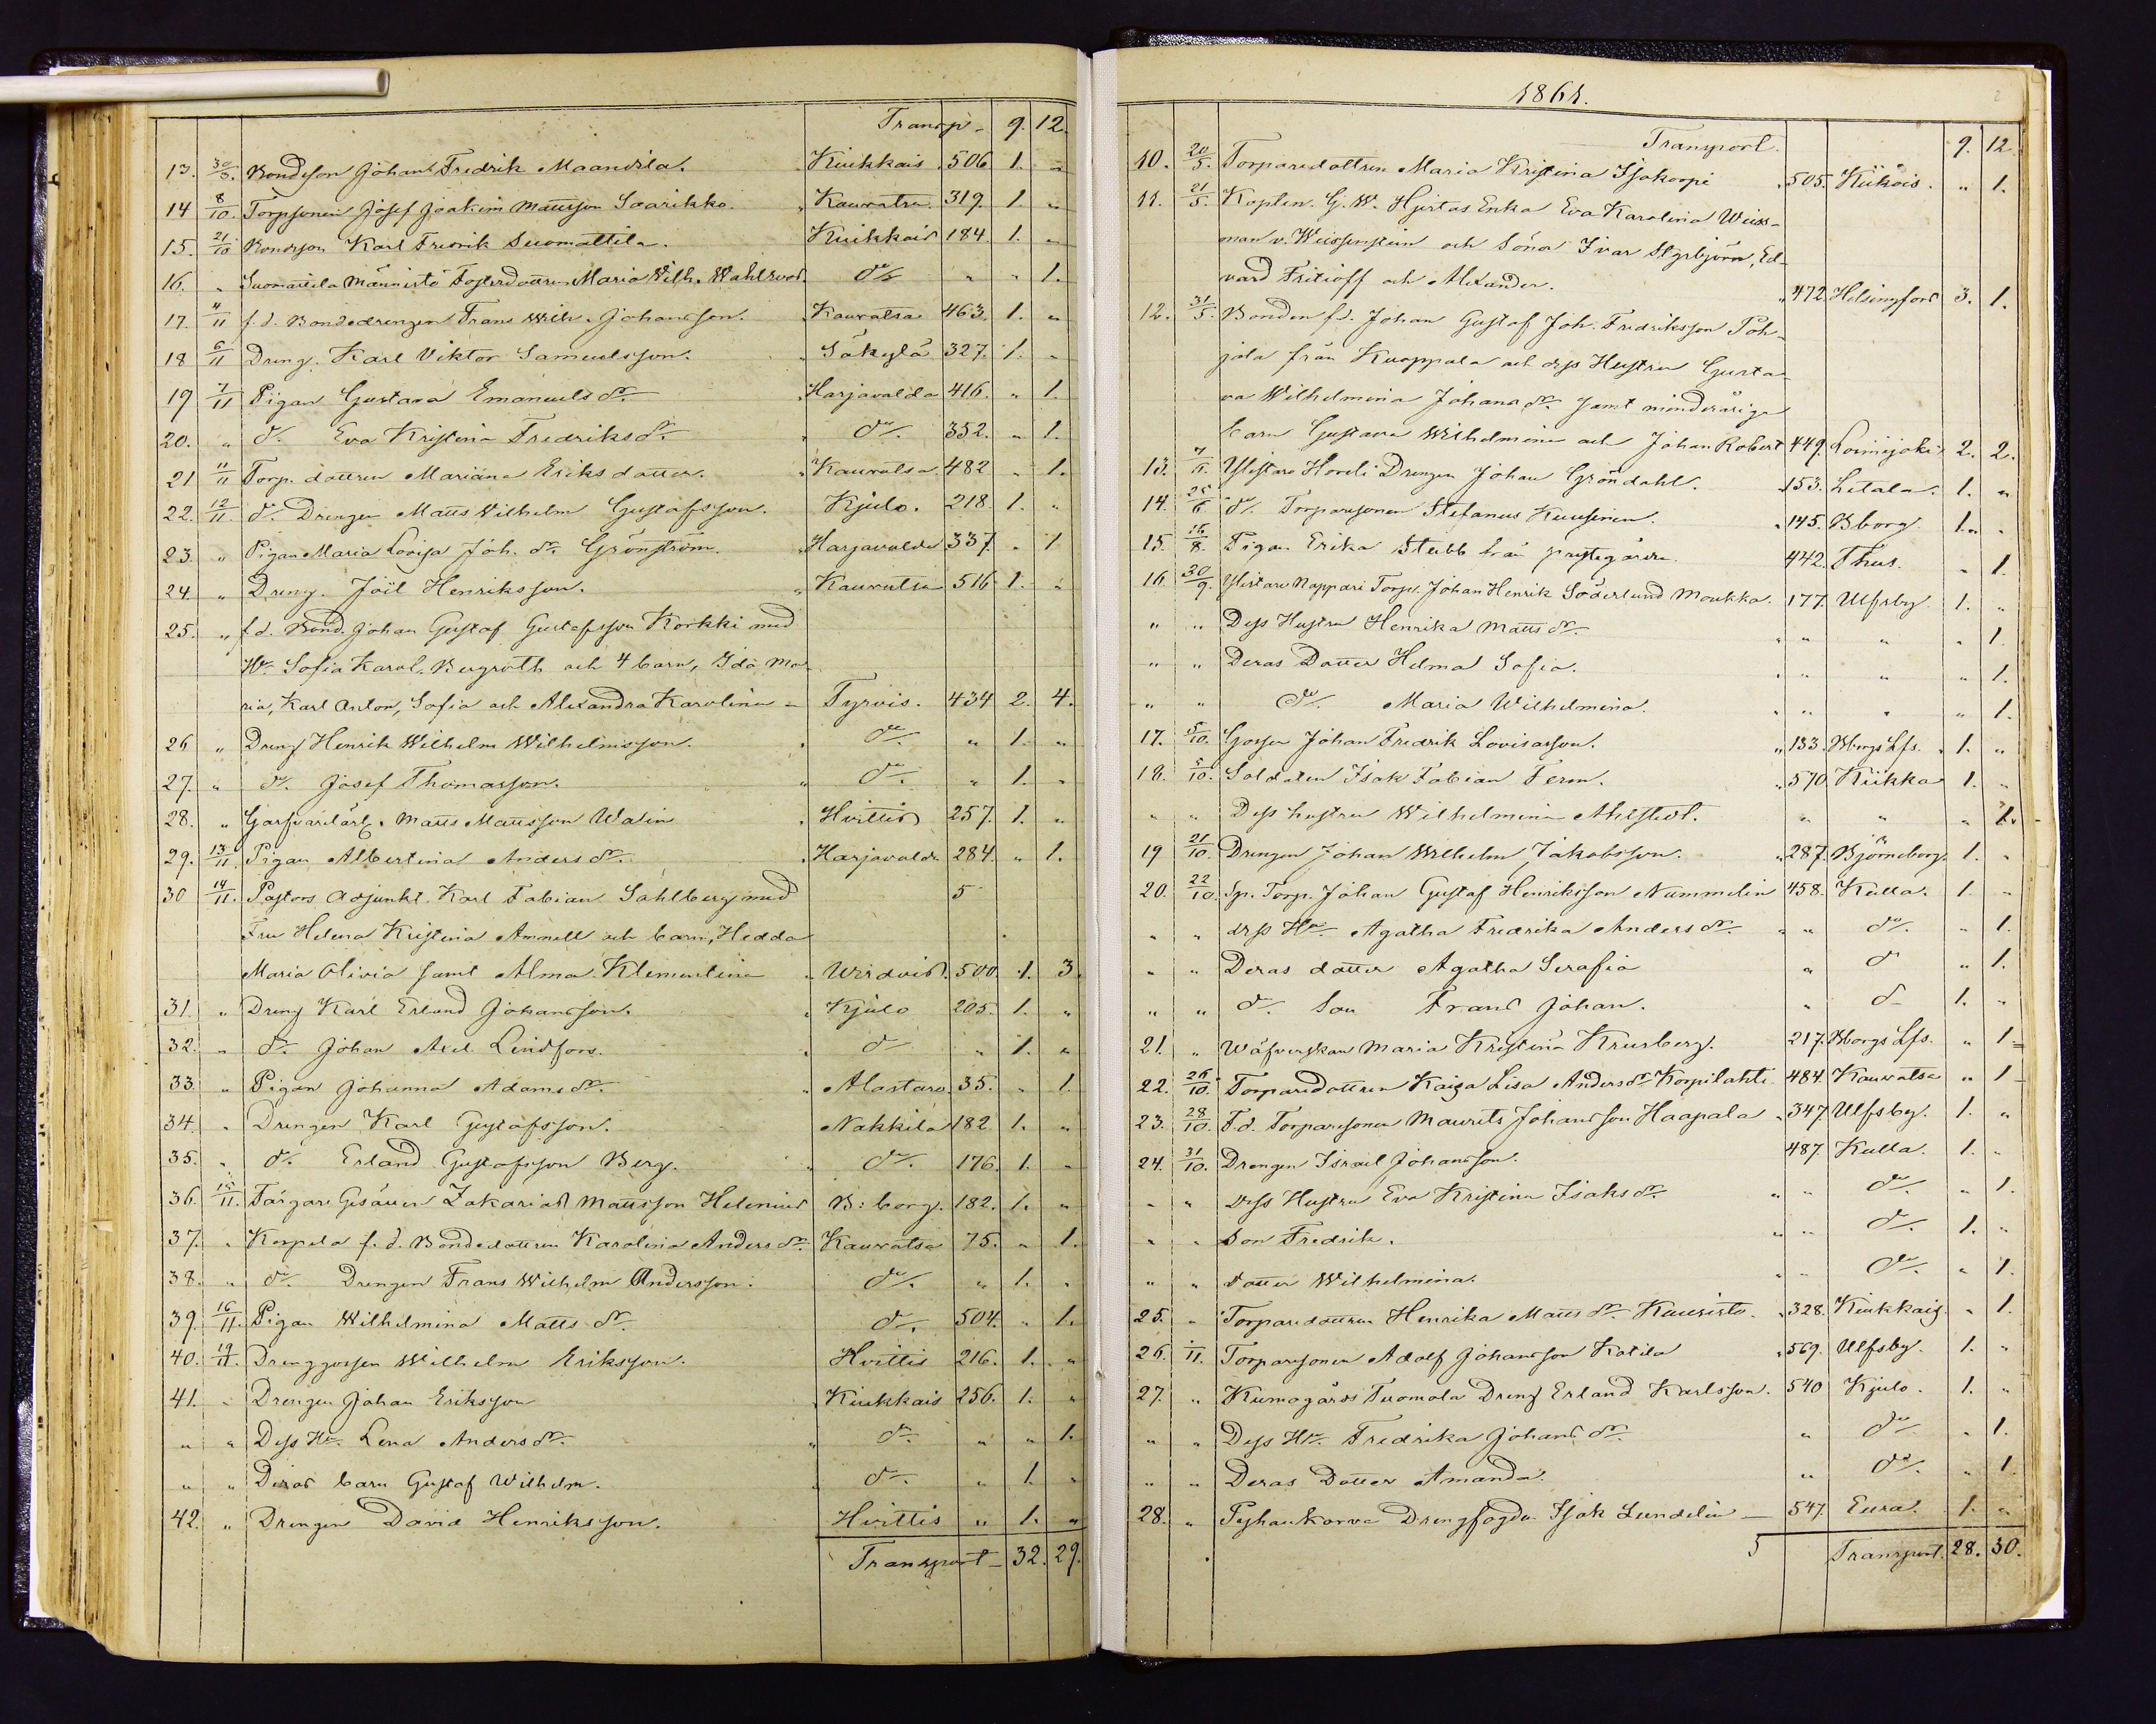 Transp. 9. 12.
13. 30/3. Bondeson Johan Fredrik Maanvila. Kiukkais 506 1. "
14 8/10. Torpsonen Josef Joakim Mattsson Saarikko. Kauvatsa 319. 1 "
15. 21/10 Bondeson Karl Fredrik Suomattila. Kiukkais 184. 1. "
16. " Suomattila Männistö Fosterdottren Maria Wilh. Wahlroos. do " " 1.
17. 4/11 f. d. Bondedrengen Frans Wilh. Johansson. Kauvatsa 463. 1. "
18 6/11 Dreng. Karl Viktor Samuelsson. Säkylä 327. 1. "
19 7/11 Pigan Gustava Emanuels dr. Harjavalda 416. " 1.
20. " do Eva Kristina Fredriks dr. do 352. " 1.
21 11/11 Torp. dottren Mariana Eriks dotter. Kauvatsa 482 " 1.
22. 12/11. do Drengen Matts Wilhelm Gustafsson. Kjulo. 218. 1. "
23. " Pigan Maria Lovisa Joh. dr. Grönström. Harjavalda 337. " 1
24. " Dreng. Joël Henriksson. Kauvatsa 516 1. "
25. " f. d. Bond. Johan Gustaf Gustafsson Korkki med
Hu. Sofia Karol. Bergroth och 4 barn, Ida Ma
ria, Karl Anton, Sofia och Alexandra Karolina - Tyrvis. 434 2. 4.
26 " Dreng Henrik Wilhelm Wilhelmsson. do " 1. "
27. " do Josef Thomasson. do " 1. "
28. " Garfvarilärl. Matts Mattsson Walin Hvittis 257. 1. "
29. 13/11. Pigan Albertina Anders dr. Harjavalda 284. " 1.
30 14/11. Pastors Adjunkt. Karl Fabian Sahlberg med 5
Fru Helena Kristina Amnell och barn, Hedda
Maria Olivia samt Alma Klementina Wirdois. 500. 1. 3.
31. " Dreng Karl Erland Johansson. Kjulo 205. 1. "
32. " do Johan Axel Lindfors. do " 1. "
33. " Pigan Johanna Adams dr. Alastaro 35. " 1
34. " Drengen Karl Gustafsson. Nakkila 182. 1. "
35. " do Erland Gustafsson Berg. do 176. 1. "
36. 15/11. Färgare Gesällen Zakarias Mattsson Helenius B:borg. 182. 1. "
37. " Korpela f. d. Bondedottren Karolina Anders dr. Kauvatsa 75. " 1.
38. " do Drengen Frans Wilhelm Andersson. do " 1. "
39. 16/11. Pigan Wilhelmina Matts dr. do 504. " 1.
40. 19/11. Dreng gossen Wilhelm Eriksson. Hvittis 216. 1. "
41. " Drengen Johan Eriksson Kiukkais 256. 1. "
" " Dess Hu. Lena Anders dr. do " " 1.
" " Deras barn Gustaf Wilhelm. do " 1. "
42. " Drengen David Henriksson. Hvittis " 1. "
Transport - 32. 29.
1861.
Transport. 9. 12
10. 20/5. Torparedottren Maria Kristina Isokorpi 505. Kiikois. " 1.
11. 21/5. Kapten. G. W. Hjertas Enka Eva Karolina Weiss-
man v. Weissenstein och Söner Ivar Styrbjörn, Ed-
vard Fritioff och Alexander. 472. Helsingfors 3. 1.
12. 31/5. Bonden f.d. Johan Gustaf Joh. Fredriksson Poh-
jala från Kuoppala och dess Hustru Gusta-
va Wilhelmina Johans dr. samt minderåriga
barn Gustava Wilhelmina och Johan Robert 449. Loimijoki 2. 2.
13. Ylistaro Hoveli Drengen Johan Gröndahl. 153. Letala. 1. "
14. 25/6 do Torparesonen Stefanus Kuusinen. 145. Bborg. 1. "
15. 16/8. Pigan Erika Stubb från prestegården. 442. Thus. " 1.
16. 30/9. Ylistaro Nappari Torp. Johan Henrik Söderlund Moukka. 177. Ulfsby 1. "
" " Dess Hustru Henrika Matts dr. " " " 1.
" " Deras Dotter Helma Sofia. " " " 1.
" " do Maria Wilhelmina. " " " 1.
17. 5/10. Gossen Johan Fredrik Lovisasson. 133. Bborgs Lfs. 1. "
18. 5/10. Soldaten Isak Fabian Ferm. 570. Kiikka 1. "
" " Dess hustru Wilhelmina Ahlstedt. " " " 1.
19 21/10. Drengen Johan Wilhelm Jakobsson. 287. Björneborg. 1. "
20. 22/10. Sp. Torp. Johan Gustaf Henriksson Nummelin 458. Kulla. 1. "
" " dess Hu. Agatha Fredrika Anders dr. " do " 1.
" " Deras dotter Agatha Serafia " do " 1.
" " do Son Frans Johan. " do 1. "
21. " Wäfverskan Maria Kristina Krusberg. 217. Bborgs Lfs. " 1
22. 26/10. Torparedottren Kaisa Lisa Anders dr. Korpilahti 484. Kauvatsa " 1
23. 28/10. F.d. Torparesonen Maurits Johansson Haapala 347. Ulfsby. 1. "
24. 31/10. Drengen Israel Johansson. 487. Kulla. 1. "
" " dess Hustru Eva Kristina Isaks dr. " do " 1.
" " Son Fredrik. " do 1. "
" " dotter Wilhelmina. " do " 1.
25. " Torparedottren Henrika Matts dr. Kauristo. 328. Kiukkais. " 1.
26. /11. Torparesonen Adolf Johansson Katila 569. Ulfsby. 1. "
27. " Kumogårds Tuomola Dreng Erland Karlsson. 540 Kjulo. 1. "
" " Dess Hu. Fredrika Johans dr. " do " 1.
" " Deras Dotter Amanda. " do " 1
28. " Pyhänkorva Drengfogden Isak Lundelin — 547. Eura. 1. "
Transport. 28. 30.